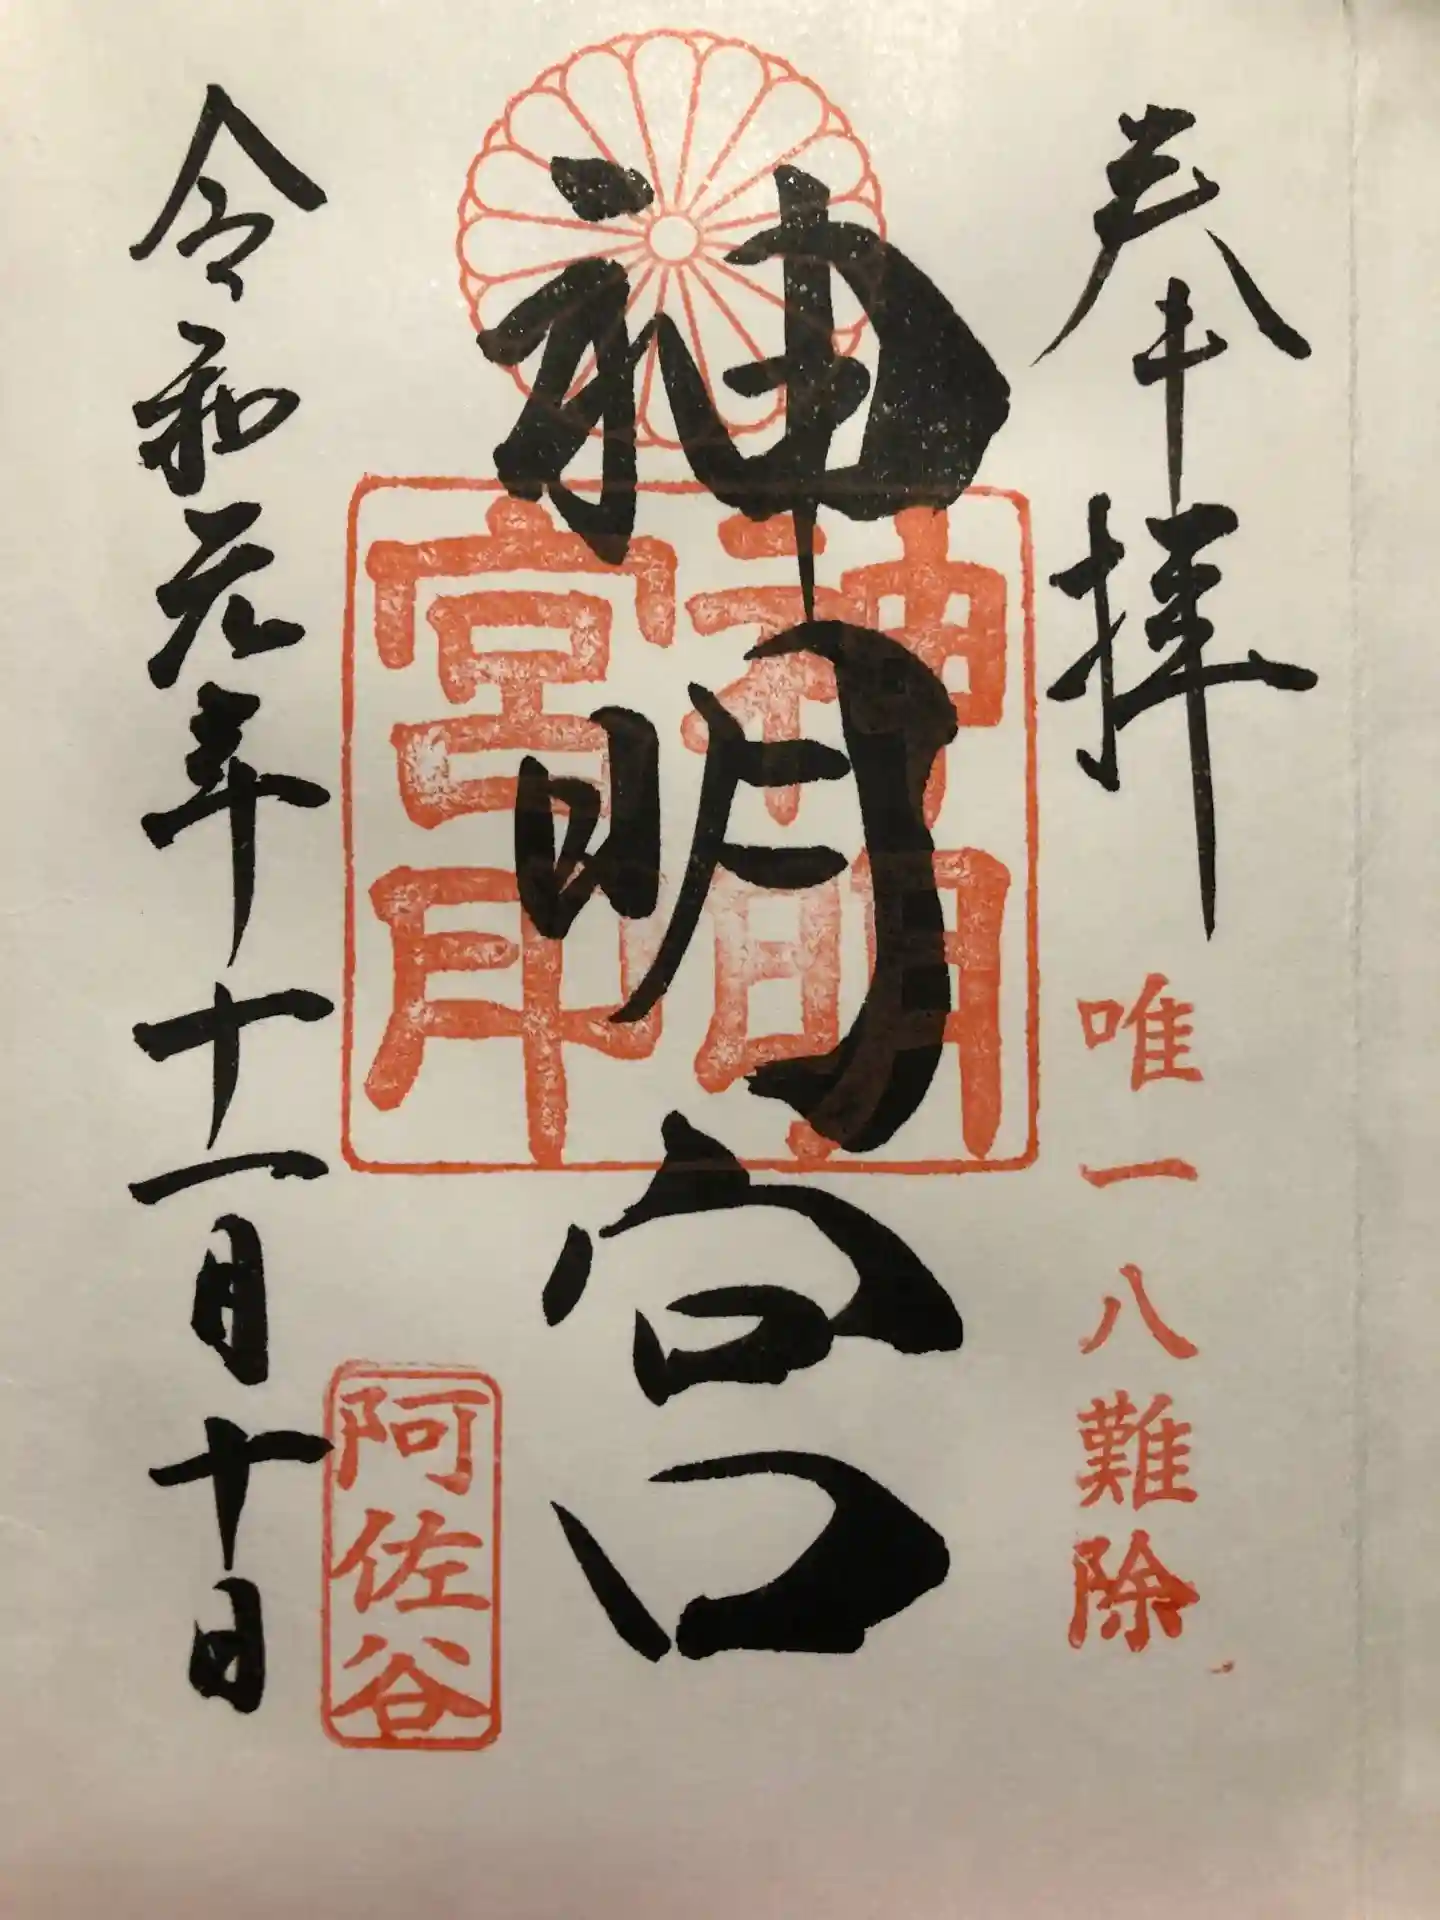 奉拝
唯一八難除
神明宮
神明
宮印
阿佐谷
令和元年十一月十日